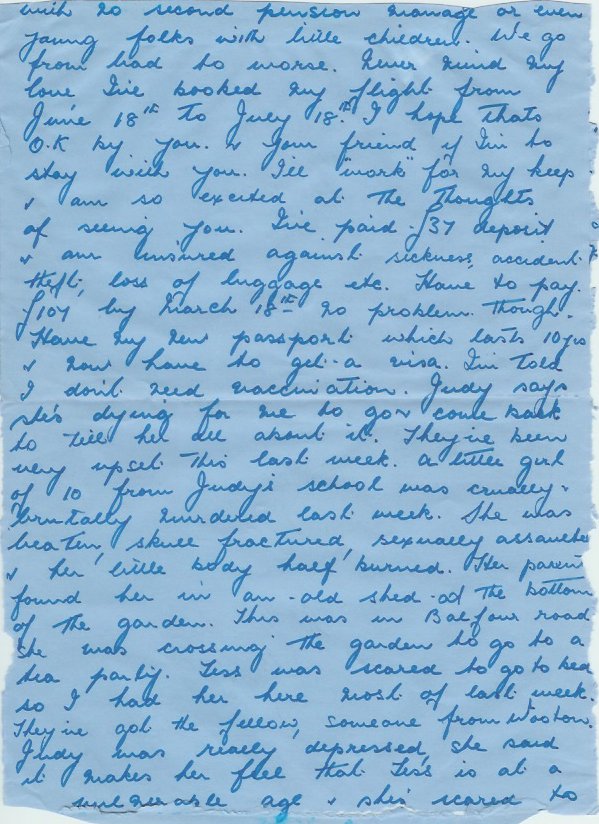 with no second pension manage or even
young folks with little children. We go
from bad to worse. Never mind my
love I've booked my flight from
June 18th to July 18th. I hope thats
O.K by you. & your friend if I'm to
stay with you. I'll "work" for my keep.
& am so excited at the thoughts
of seeing you. I've paid £37 deposit
& am insured against sickness, accident.
theft, loss of luggage etc. Have to pay.
£107 by March 18th no problem though.
Have my new passport which lasts 10yrs
& now have to get a visa. I'm told
I don't need vaccination. Judy says
she's dying for me to go & come back
to tell her all about it. They've been
very upset this last week. A little girl
of 10 from Judy's school was cruelly &
brutally murdered last week. She was
beaten, skull fractured, sexually assaulted
& her little body half burned. Her parents
found her in an old shed at the bottom
of the garden. This was in Balfour road
She was crossing the garden to go to a
tea party. Tess was scared to go to bed
so I had her here most of last week.
They've got the fellow, someone from Wooton.
Judy was really depressed, she said
it makes her feel that Tess is at a
vulnerable age & she's scared to